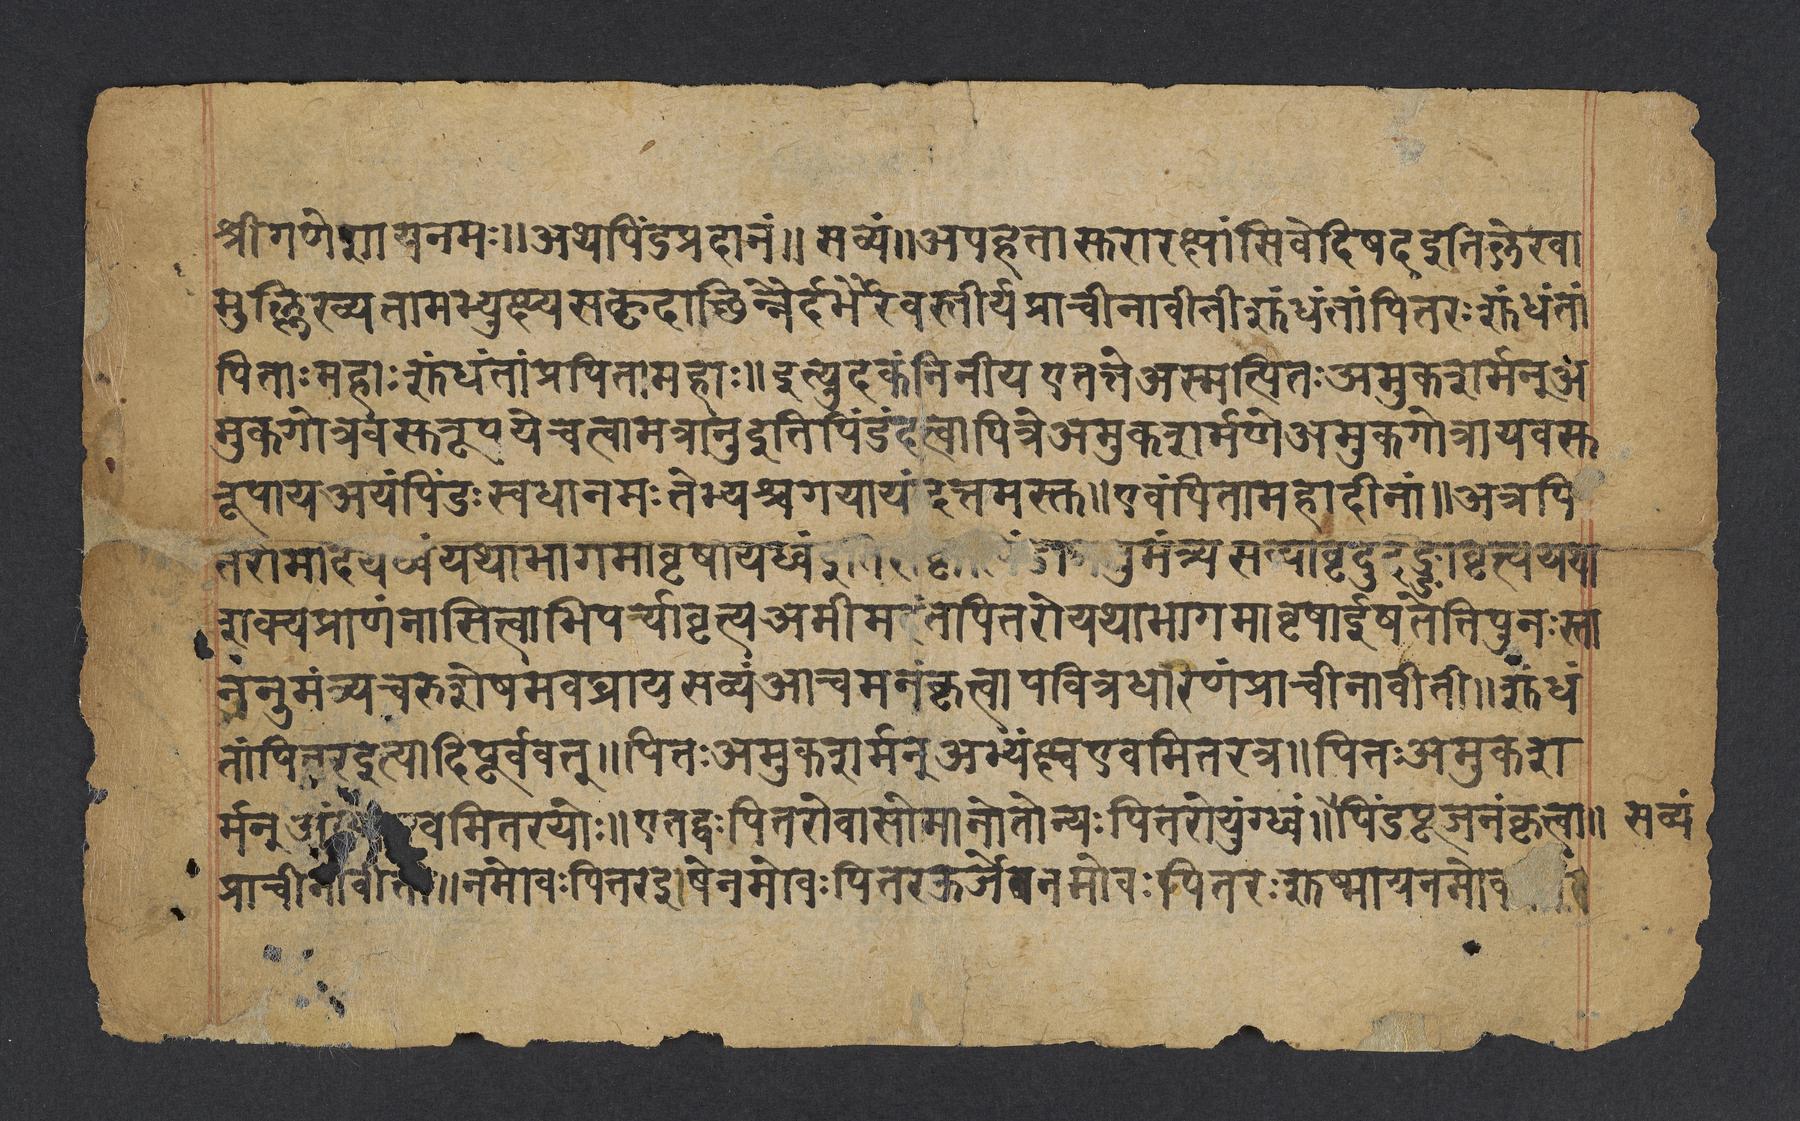 श्रीगणेशायनमः॥अथपिंडप्रदानं॥सव्यं॥अपहतासुरारक्षांसिवेदिषदइतिलेखा
मुल्लिख्यतामभ्युक्ष्यसकृदाछिन्नैर्दर्भैरवस्तीर्यप्राचीनावीतीशुंधंतांपितरःशुंधंतां
पिताःमहाःशुंधंतांप्रपितामहाः॥इत्युदकंनिनीयएतत्तेअस्मत्पितःअमुकशर्मन्अ
मुकगोत्रवसुरूपयेचत्वामत्रानुइतिपिंडंदत्वापित्रेअमुकशर्मणेअमुकगोत्रायवसु
रूपायअयंपिंडःस्वधानमःतेभ्यश्चगयायांदत्तमस्तु॥एवंपितामहादीनां॥अत्रपि
तरोमादयध्वंयथाभागमावृषायध्वं नुमंत्र्यसव्यावृदुदङ्ङावृत्त्ययथा
शक्यप्राणंनासित्वाभिपर्यावृत्त्यअमीमदंतपितरोयथाभागमावृषाईषतेतिपुनःस्ता
ननुमंत्र्यचरुशेषमवघ्रायसव्यंआचमनंकृत्वापवित्रधारणंप्राचीनावीती॥शुंधं
तांपितरइत्यादिपूर्ववत्॥पितःअमुकशर्मन्अभ्यंक्ष्वएवमितरत्र॥पितःअमुकश
र्मन् वमितरयोः॥एतद्वःपितरोवासोमानोतोन्यःपितरोयुंग्ध्वं॥पिंडपूजनंकृत्वा॥ सव्यं
प्राचीनावीती॥नमोवःपितरइषेनमोवःपितरऊर्जेनमोवःपितरःशुष्मायनमोव